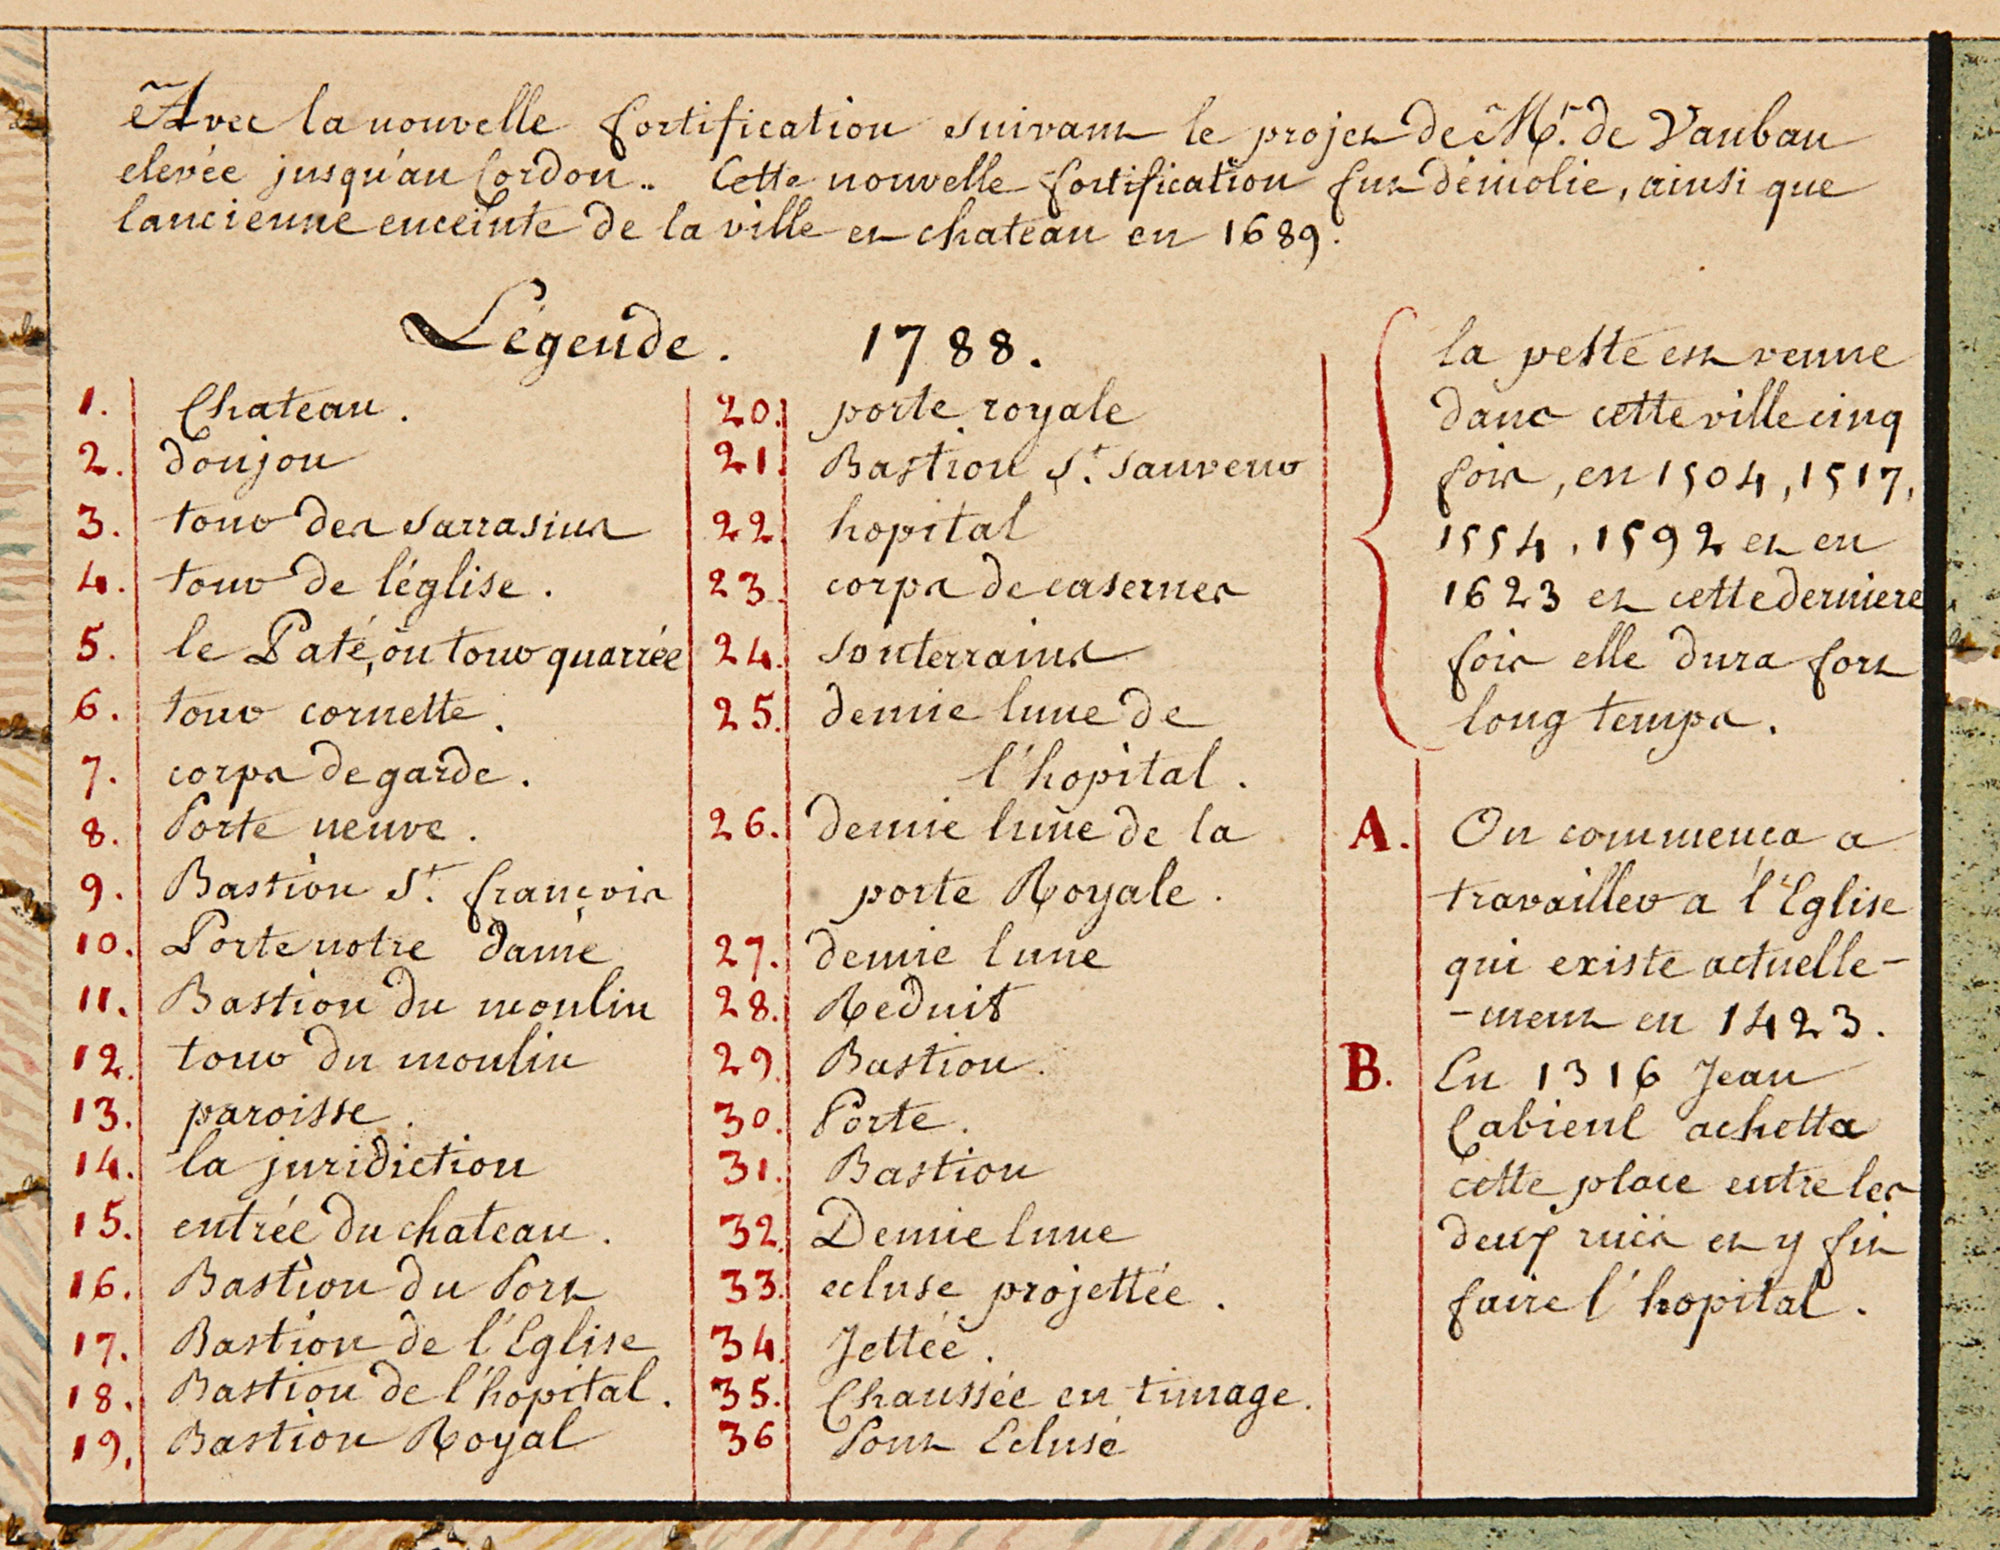 Avec la nouvelle fortification suivant le projet de Mr. de Vauban
elevée jusqu'au Cordon.. Cette nouvelle fortification fut démolie, ainsi que
lancienne enceinte de la ville et chateau en 1689.
Légende. 1788.
1. Chateau.
2. donjon
3. tour des Sarrasins
4. tour de léglise.
5. le Paté, ou tour quarrée
6. tour cornette.
7. corps de garde.
8. Porte neuve.
9. Bastion St. françois
10. Porte notre dame
11. Bastion du moulin
12. tour du moulin
13. paroisse.
14. la juridiction
15. entrée du chateau.
16. Bastion du Port
17. Bastion de l'Eglise
18. Bastion de l'hopital.
19. Bastion Royal
20. porte royale
21. Bastion St. Sauveur
22. hopital
23. corps de casernes
24. Souterrains
25. demie lune de
l'hopital.
26. demie lune de la
porte Royale.
27. demie lune
28. Reduit
29. Bastion.
30. Porte.
31. Bastion
32. Demie lune
33. ecluse projettée.
34. Jettée.
35. Chaussée en tunage.
36 Pont Eclusé
la peste est venue
dans cette ville cinq
fois, en 1504, 1517,
1554, 1592 et en
1623 et cette derniere
fois elle dura fort
long temps.
A. On commença a
travailler a l'Eglise
qui existe actuelle-
-ment en 1423.
B. En 1316 Jean
Cabieul achetta
cette place entre les
deux rües et y fit
faire l'hopital.